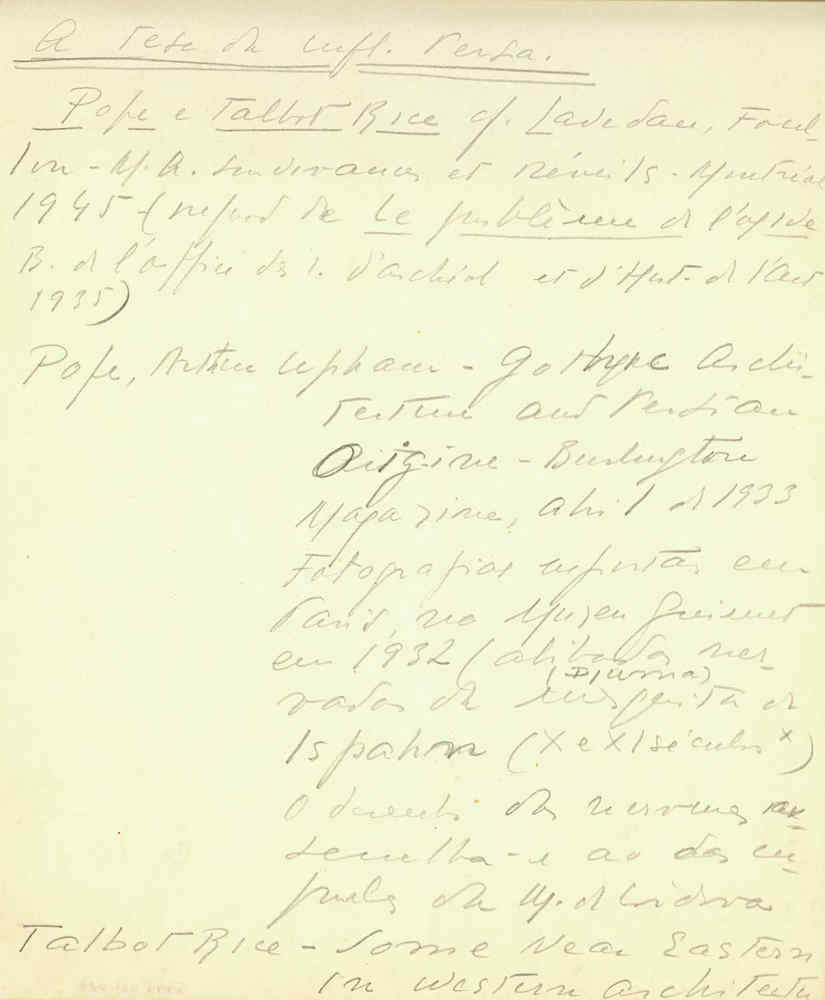 A tese da infl. Persa.
Pope e Talbot Rice cf. Lavedan, Foul-
lon - M. A. Survivances et Réveils - Montréal
1945 - (refund de Le problème de l'ogive
B. de l'office des i. d'archéol et d'Hist. de l'Art
1935)
Pope, Arthur Upham - Gothyc Archi-
tecture and Persian
Origine - Burlington
Magazine, abril de 1933
Fotografias expostas em
Paris, no Museu Guimet
em 1932 (abóbadas ner-
(Djuma)
vadas da mesquita de
Ispahan (X e XI séculos x)
O desenho das nervuras as-
semelha-se ao das cú-
pulas da M. de Cordova
Talbot Rice - Some Near Eastern
in western architectu